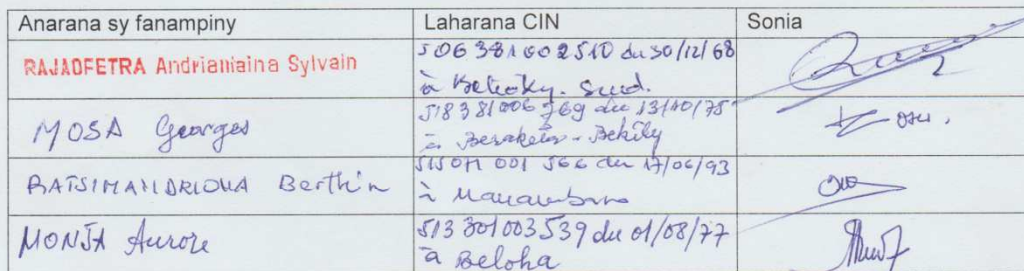 Anarana sy fanampiny Laharana CIN Sonia
RAJAOFETRA Andriamiaina Sylvain 506 381 002 510 du 30/12/68
à Betioky. Sud.
MOSA Georges 518 381 006 769 du 13/10/75
à Beraketa - Bekily
RATSIMANDRIOHA Berthin 001 566 du 17/06/93
à
MONJA Aurore 513 301 003 539 du 01/08/77
à Beloha